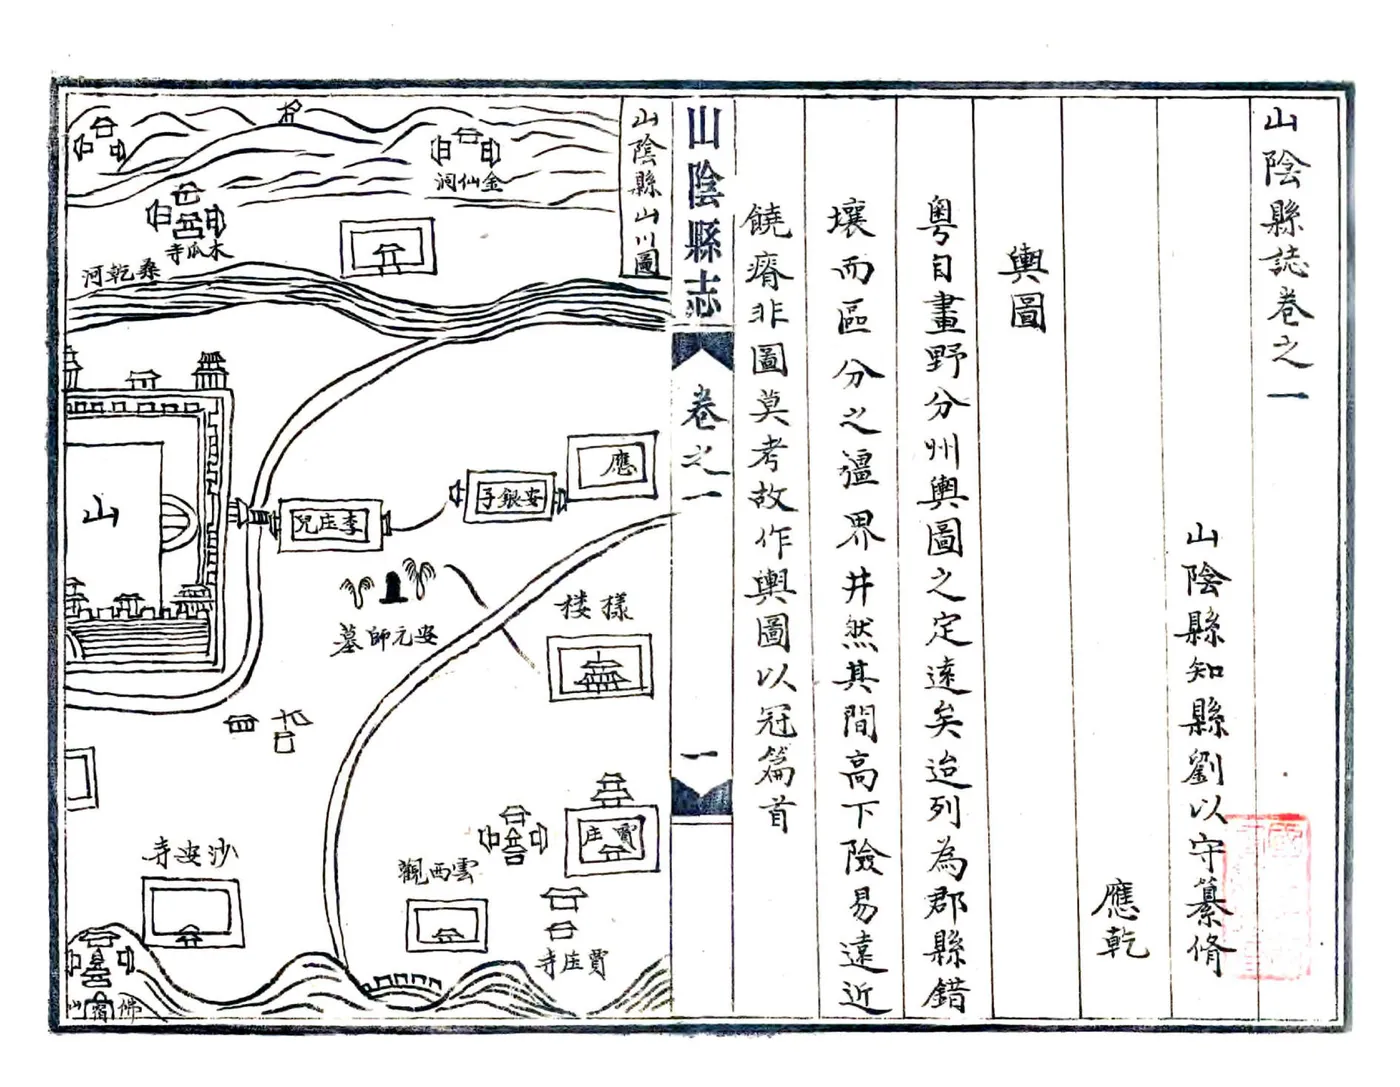 山陰縣誌卷之一
山陰縣知縣劉以守纂脩
應乾
輿圖
粵自畫野分州輿圖之定遠矣迨列為郡縣錯
壤而區分之疆界井然其間高下險易遠近
饒瘠非圖莫考故作輿圖以冠篇首
山陰縣志
卷之一
一
山陰縣山川圖
金仙洞
木瓜寺
桑乾河
山
應
安銀子
李庄兒
安元師墓
樣楼
賈庄
雲西觀
賈庄寺
沙安寺
佛宿山